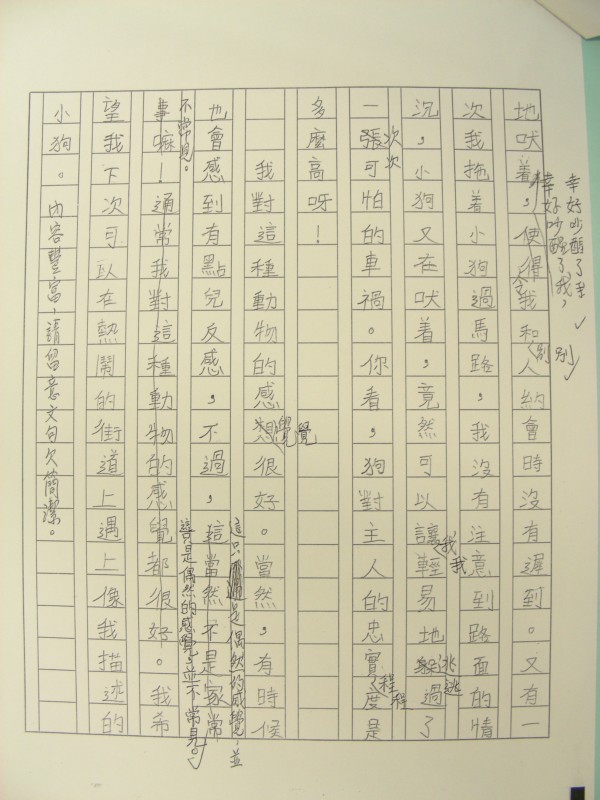 地吠着，使得我和人約會時沒有遲到。又有一
次我拖着小狗過馬路，我沒有注意到路面的情
況，小狗又在吠着，竟然可以讓輕易地躲過了
一張可怕的車禍。你看，狗對主人的忠實度是
多麼高呀！
我對這種動物的感想很好。當然，有時候
也會感到有點兒反感，不過，這當然不是家常
事嘛！通常我對這種動物的感覺都很好。我希
望我下次可以在熱鬧的街道上遇上像我描述的
小狗。
內容豐富，請留意文句欠簡潔。
幸好吵醒了我，
幸好吵醒了我
別
別
我
我
逃
逃
次
次
程
程
覺
覺
這只是偶然的感覺，並
不常見。
這只是偶然的感覺，並不常見。